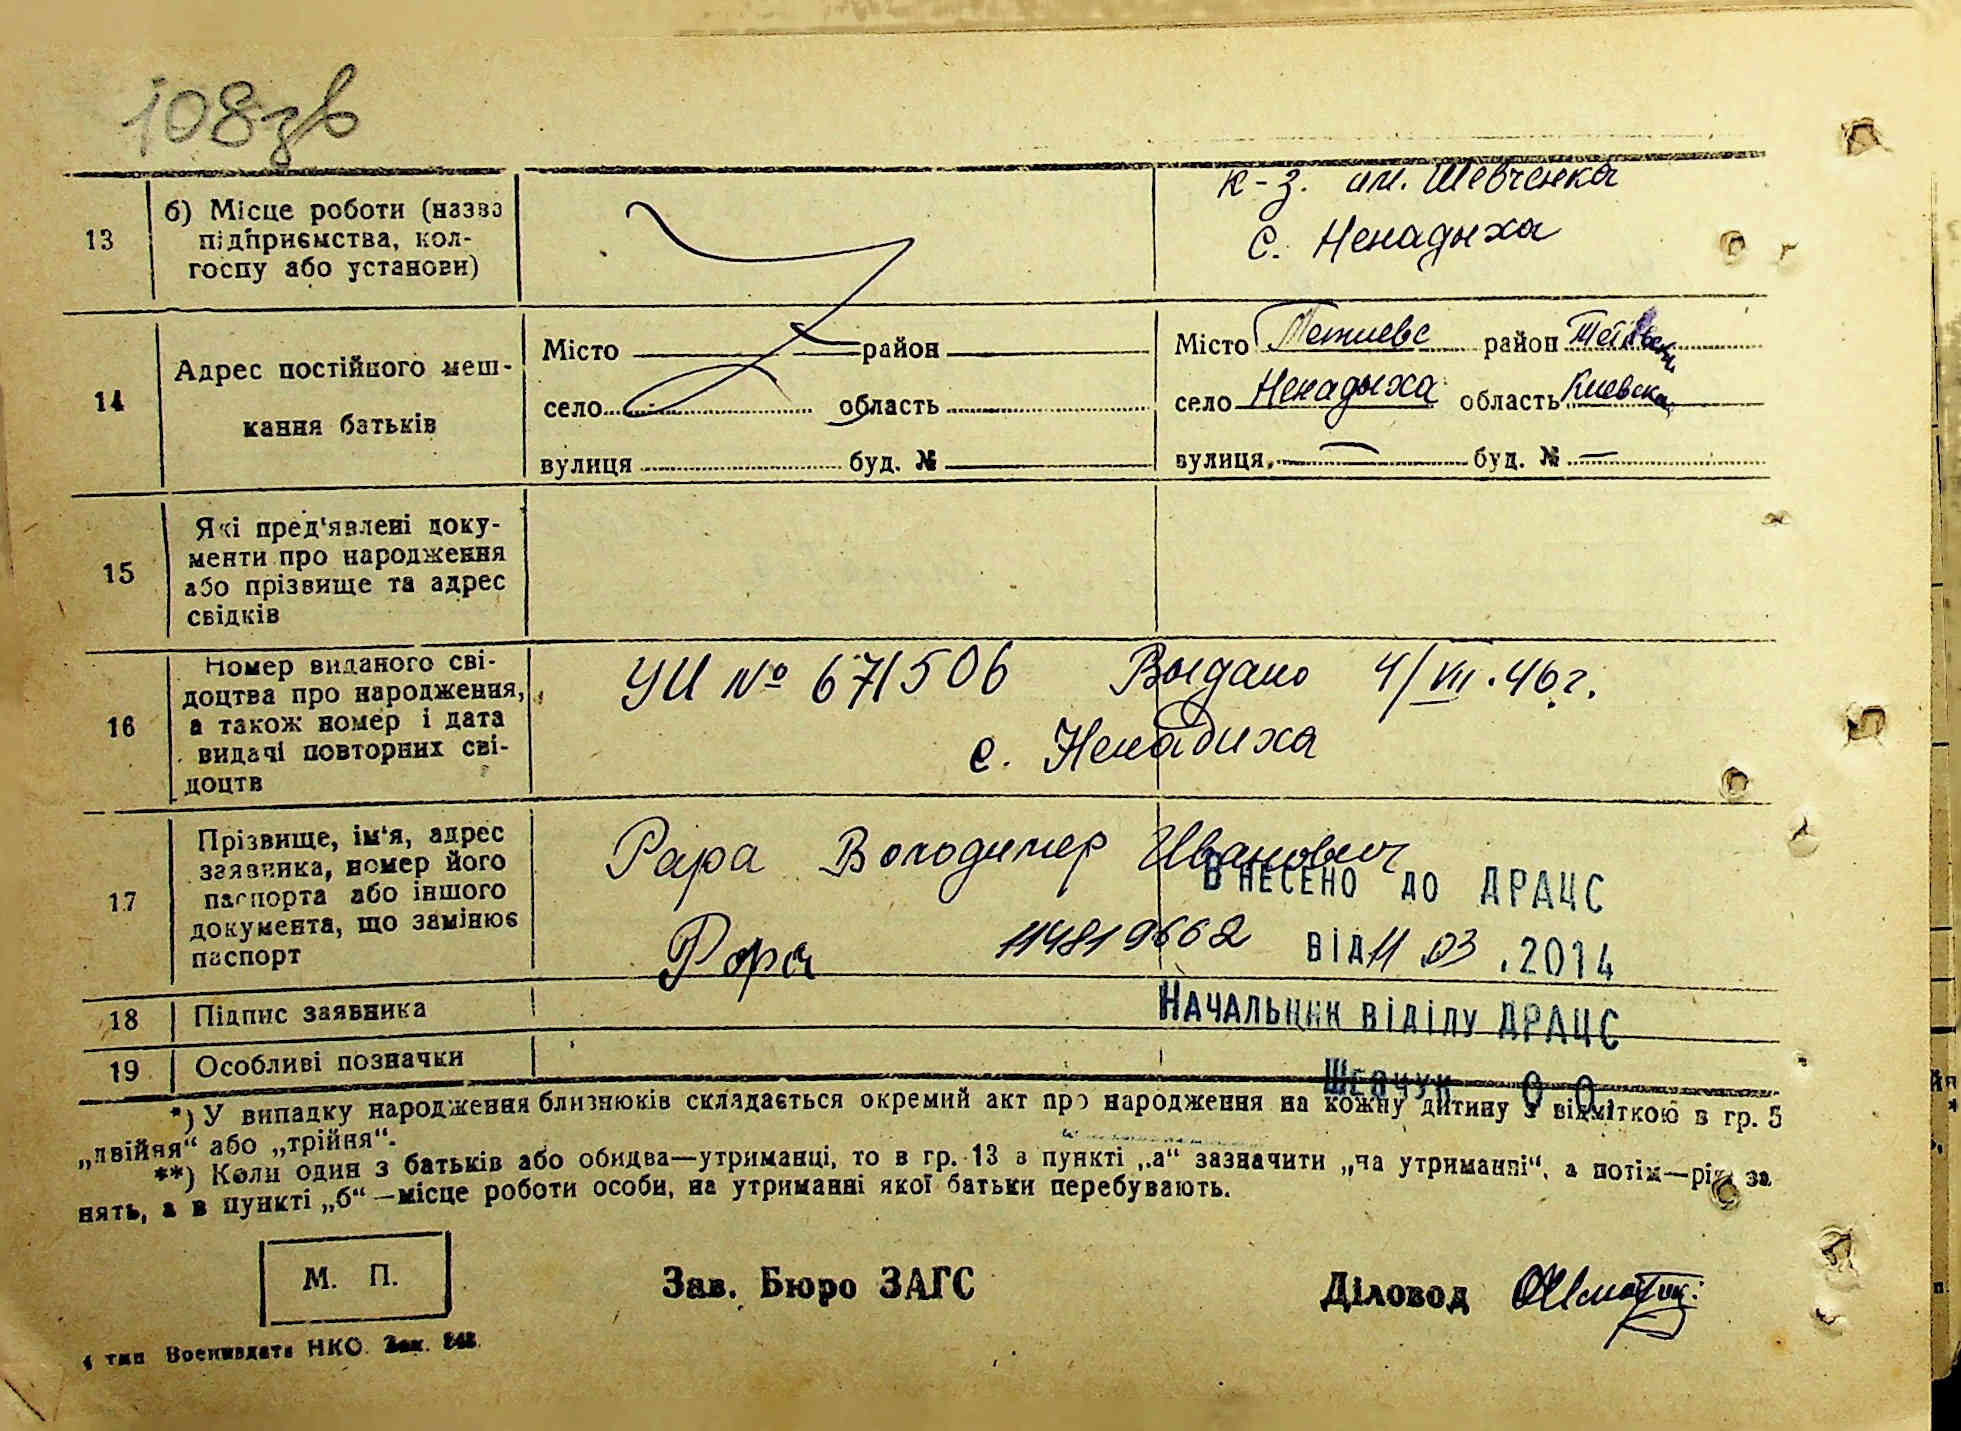 108зв
к-з. им. Шевченка
13 б) Місце роботи (назва
підприємства, кол-
госпу або установи)
с. Ненадыха
14 Адрес постійного меш-
кання батьків
Місто район
село область
вулиця буд. №
Місто Тетиевс район
село Ненадыха область Киевска
вулиця — буд. № —
15 Які пред'явлені доку-
менти про народження
або прізвище та адрес
свідків
16 Номер виданого сві-
доцтва про народження,
а також номер і дата
видачі повторних сві-
доцтв
УИ № 671506 Выдано 4/VII.46г.
с. Ненадиха
17 Прізвище, ім'я, адрес
заявника, номер його
паспорта або іншого
документа, що замінює
паспорт
Рара Володимер Иванович
Рара
Внесено до ДРАЦС
від 11 03 .2014
18 Підпис заявника
Начальник відділу ДРАЦС
19 Особливі позначки
Шевчук О О
*) У випадку народження близнюків складається окремий акт про народження на кожну дитину з відміткою в гр. 5
„двійня“ або „трійня“.
**) Коли один з батьків або обидва—утриманці, то в гр. 13 в пункті „а“ зазначити „на утриманні“, а потім—рід за
нять, а в пункті „б“—місце роботи особи, на утриманні якої батьки перебувають.
М. П.
Зав. Бюро ЗАГС
Діловод
тип Воениздата НКО. Зак.